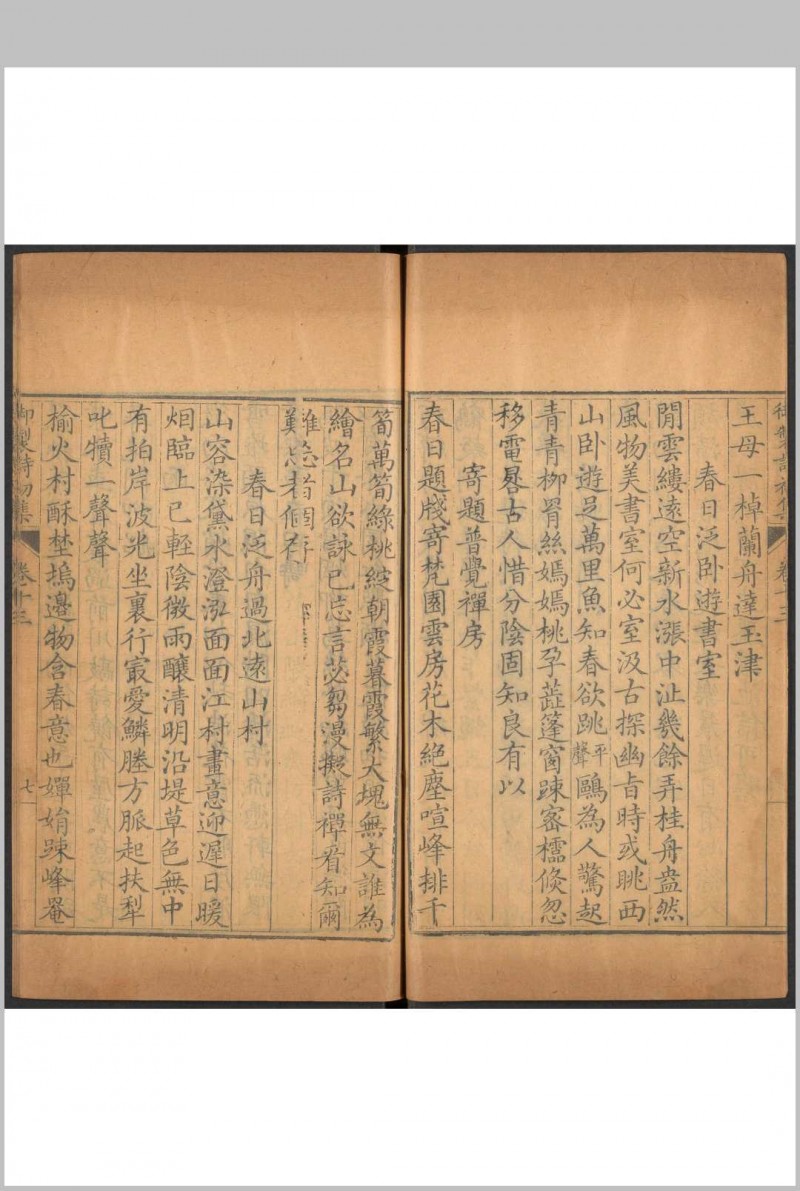 御製詩初集 卷十三
王母一棹蘭舟達玉津
春日泛卧遊書室
閒雲縷遠空新水漲中沚幾餘弄桂舟盎然
風物美書室何必室汲古探幽旨時或眺西
山卧遊足萬里魚知春欲跳平聲鷗為人驚起
青青柳罥絲嫣嫣桃孕蕋篷窗踈宻櫺倐忽
移電晷古人惜分陰固知良有以
寄題普覺禪房
春日題牋寄梵園雲房花木絶塵喧峰排千
筍萬筍綠桃綻朝霞暮霞繁大塊無文誰為
繪名山欲詠已忘言苾芻漫擬詩禪看知爾
難忘者個存
春日泛舟過北遠山村
山容染黛水澄泓面面江村畫意迎遲日暖
烟臨上巳輕陰微雨釀清明沿堤草色無中
有拍岸波光坐裏行冣愛鱗塍方脈起扶犁
叱犢一聲聲
榆火村酥埜塢邊物含春意也嬋娟踈峰罨
御製詩初集 卷十三 七